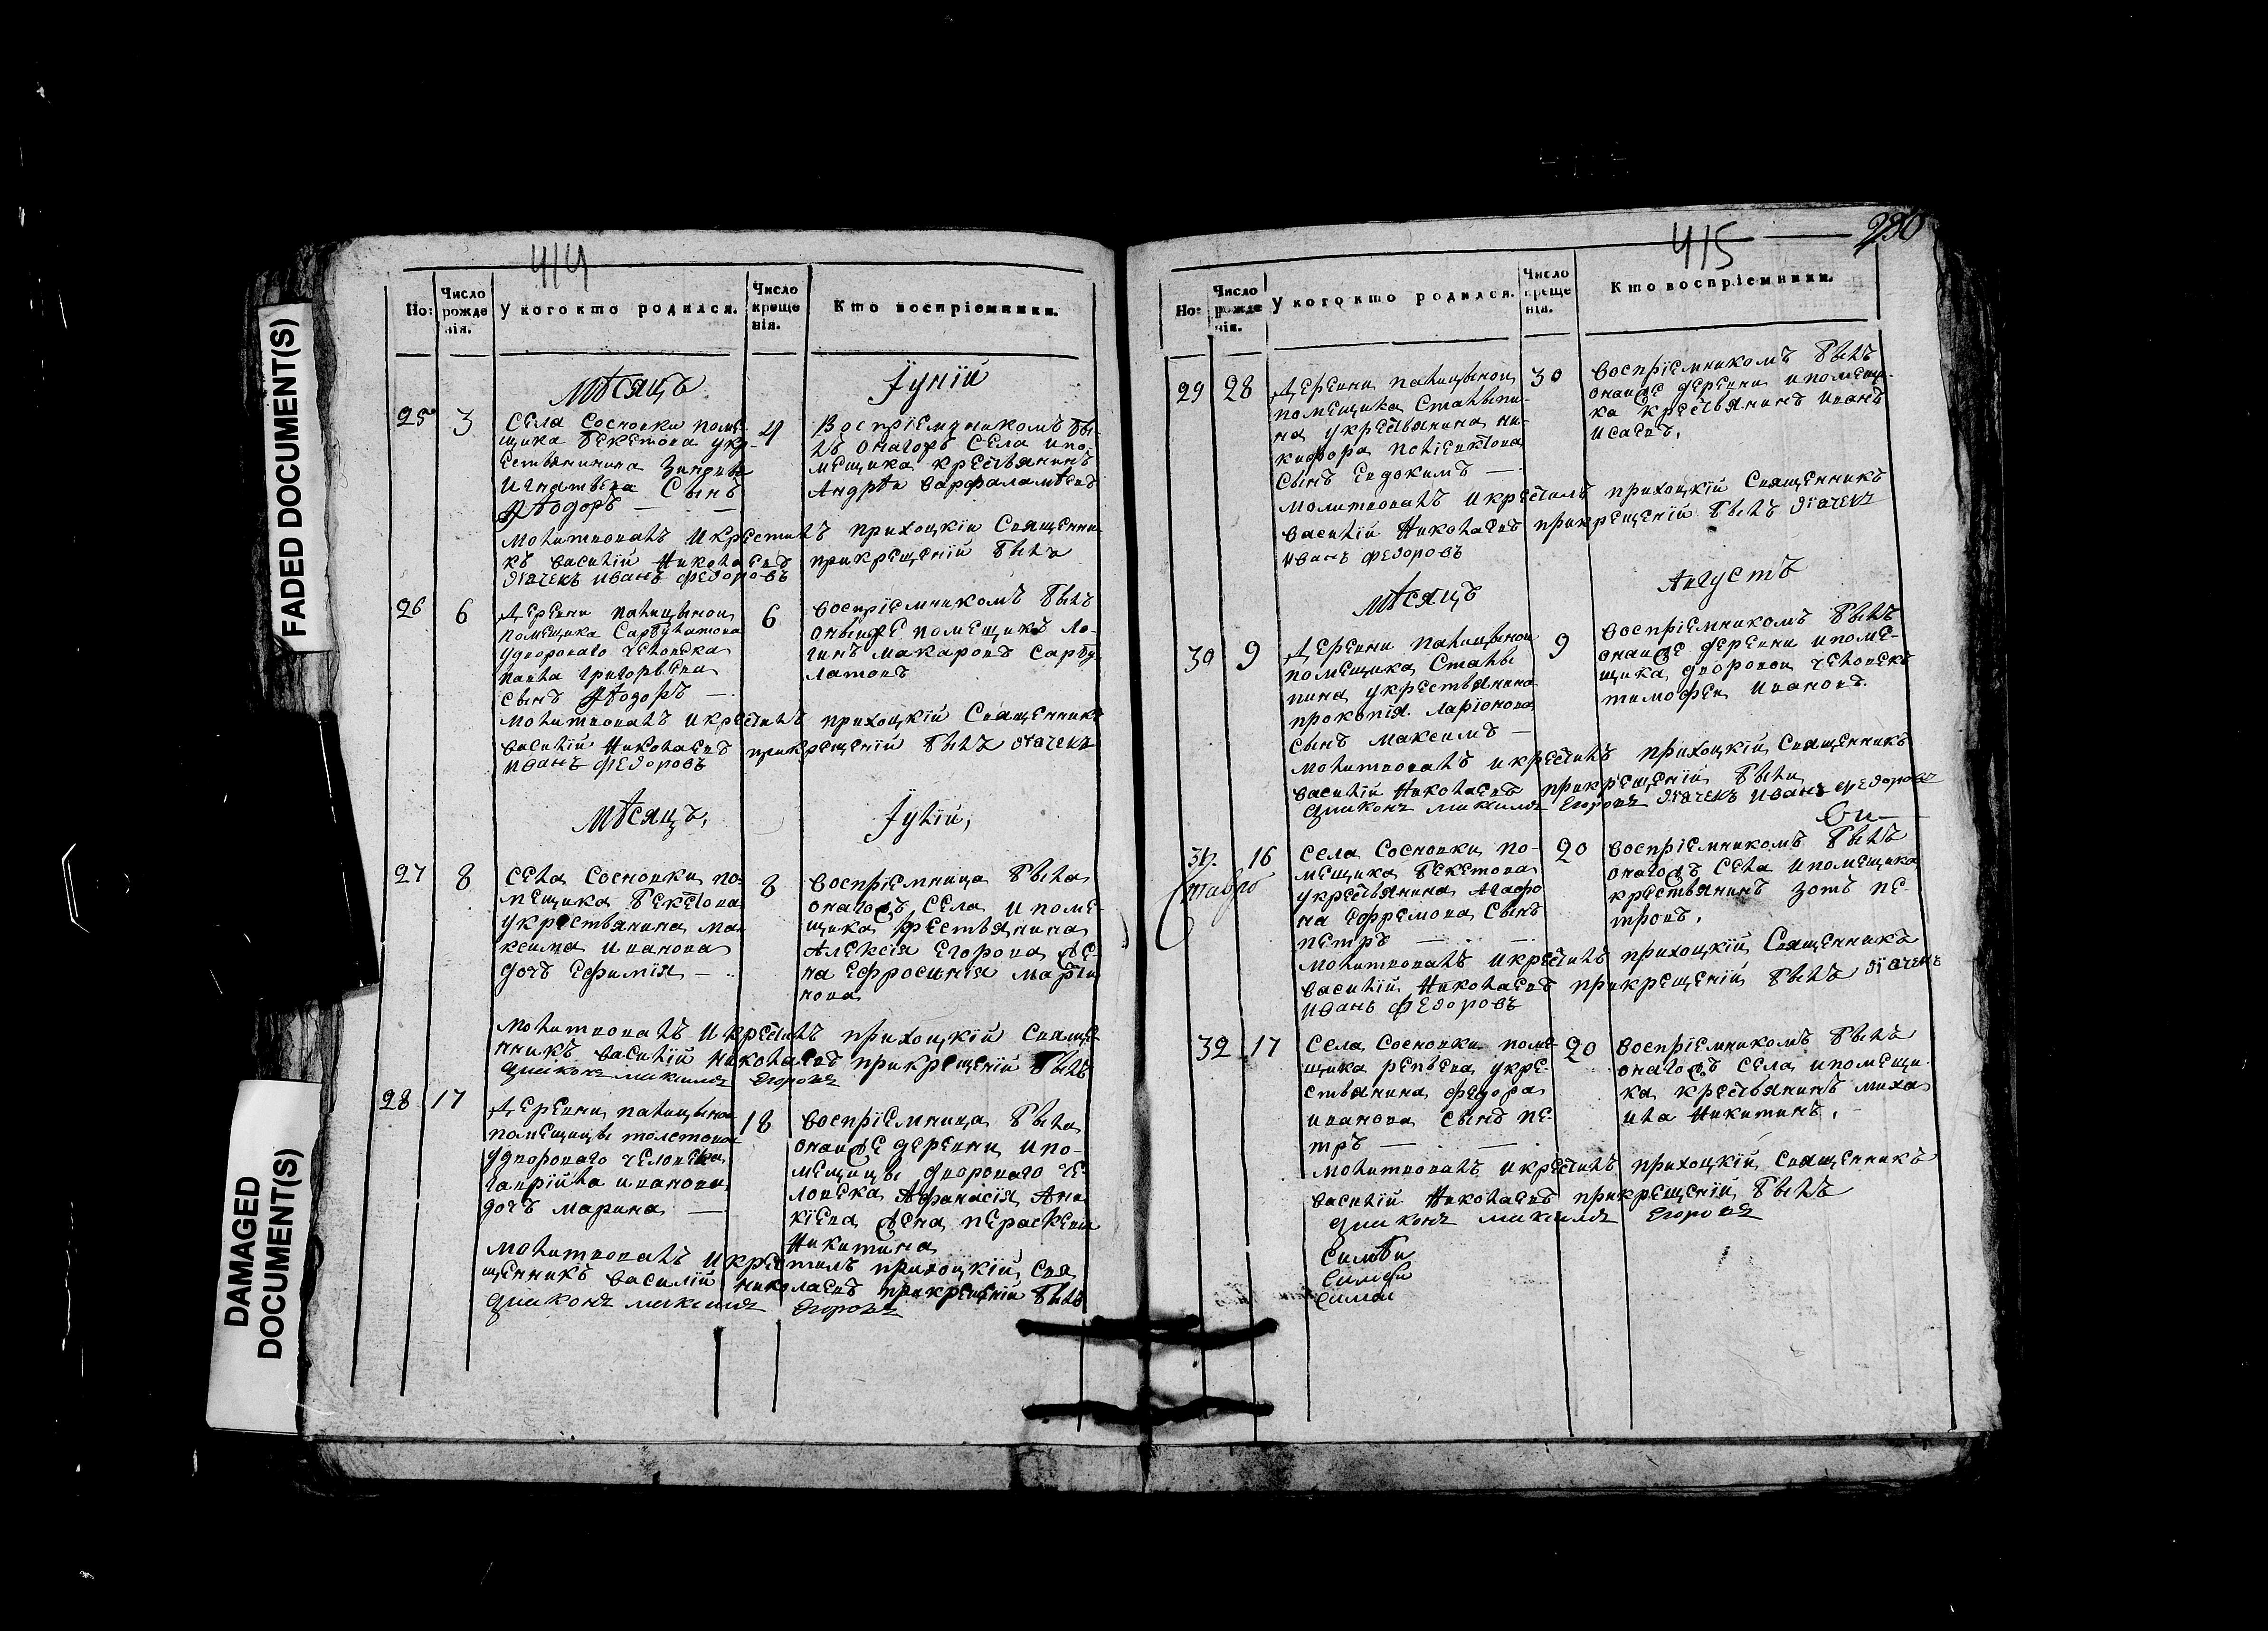 FADED DOCUMENT(S)
DAMAGED
DOCUMENT(S)
414
Но:
Число
рожде
нія.
У кого кто родился.
Число
креще
нія.
Кто воспріемники.
Мѣсяцъ
Іуній
25
3
Села Сосновки поме-
щика Бекетова укр-
естьянинина
Игнатьева Сынъ
Ѳѣодоръ —
4
Воспріемникомъ бы-
лъ онагожъ Села ипо-
мещика крестьянинъ
Андрѣи Варфаламѣевъ
Молитвовалъ Икрестилъ прихоцкій Священни-
къ Василій Николаевъ прикрещеніи былъ
дьячекъ Иванъ Федоровъ
26
6
Деревни палицыной
помещика Сарбулатова
удвороваго человека
павла григорьева
сынъ Ѳѣодоръ —
6
воспріемникомъ былъ
оныйже помещикъ Ло-
гинъ Макаровъ Сарбу-
латовъ
Молитвовалъ Икрестилъ прихоцкій Священникъ
Василій Николаевъ прикрещеніи былъ дьячекъ
Иванъ Федоровъ
Мѣсяцъ,
Іулій,
27
8
Села Сосновки по-
мещика Бекетова
укрестьянина ма-
ксима Иванова
дочь Ефимія —
8
Воспріемница была
онагожъ Села Ипоме-
щика крестьянина
Алексія Егорова же-
на Ефросинія Марти
нова
Молитвовалъ Икрестилъ прихоцкій Свяще-
нникъ Василій Николаевъ прикрещеніи былъ
Егоровъ
28
17
Деревни палицыной
помещицы толстовой
удвороваго человека
гаврійла иванова
дочь марина —
18
Воспріемница была
онайже деревни Ипо-
мещицы двороваго че-
ловека Афанасія Ани
кіева жена перасковья
Никитина
Молитвовалъ Икрестилъ прихоцкій Свя
щенникъ Василій Николаевъ прикрещеніи былъ
Егоровъ
415
230
Но:
Число
рожде
нія.
У кого кто родился.
Число
креще
нія.
Кто воспріемники.
29
28
Деревни палицыной
помещика Сталыпи-
на укрестьянина ни-
кифора
Сынъ Евдокимъ —
30
Воспріемникомъ былъ
онайже деревни ипомещи-
ка крестьянинъ иванъ
Исаевъ,
Молитвовалъ Икрестилъ прихоцкій Священникъ
Василій Николаевъ прикрещеніи былъ дьячекъ
Иванъ Федоровъ
Мѣсяцъ
Августъ
30
9
Деревни палицыной
помещика Сталы
пина укрестьянина
прокопія Ларіонова
Сынъ Максимъ —
9
Воспріемникомъ былъ
онайже деревни ипоме-
щика дворовой человекъ
тимофеи Ивановъ.
Молитвовалъ Икрестилъ прихоцкій Священникъ
Василій Николаевъ прикрещеніи были
Егоровъ дьячекъ Иванъ Федоровъ
31.
16
Села Сосновки по-
мещика Бекетова
укрестьянина Агафо
на Ефремова Сынъ
петръ —
20
Воспріемникомъ былъ
онагожъ Села Ипомещика
крестьянинъ Зотъ пе-
тровъ,
Молитвовалъ Икрестилъ прихоцкій Священникъ
Василій Николаевъ прикрещеніи былъ дьячекъ
Иванъ Федоровъ
32
17
Села Сосновки поме-
щика репьева укре-
стьянина федора
иванова Сынъ пе-
тръ —
20
Воспріемникомъ былъ
онагожъ Села ипомещи-
ка крестьянинъ миха
ила Никитинъ,
Молитвовалъ Икрестилъ прихоцкій Священникъ
Василій Николаевъ прикрещеніи былъ
Егоровъ